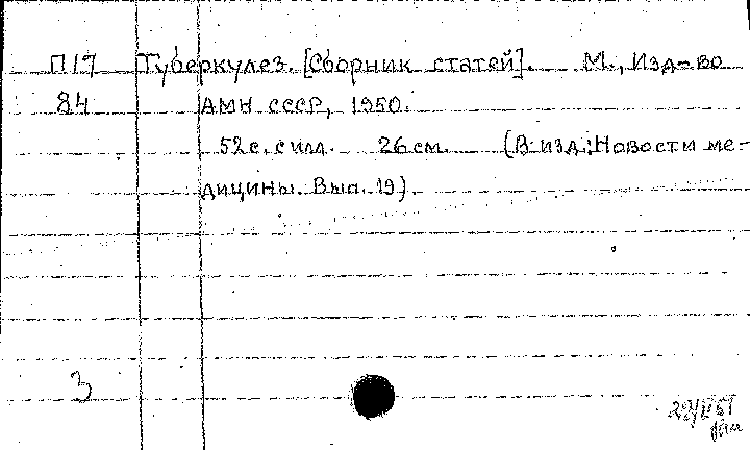 П17 Туберкулез. [Сборник статей]. М., Изд-во
84 АМН СССР, 1950.
52 с. с илл. 26 см. (В изд.: Новости ме-
дицины. Вып. 19).
3